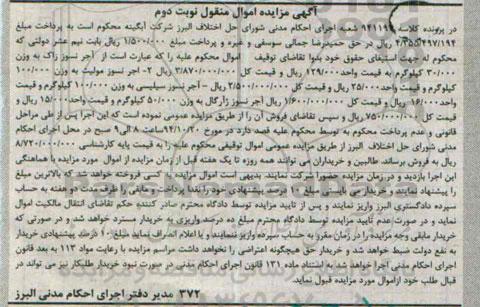 آگهی مزایده اموال منقول نوبت دوم
در پرونده کلاسه ۹۴۱۱۹۹ شعبه اجرای احکام مدنی شورای حل اختلاف البرز شرکت آبگینه محکوم است به پرداخت مبلغ
۴/۳۵۵/۴۹۷/۱۹۴ ریال در حق حمیدرضا جمالی سوسفی و غیره و پرداخت مبلغ ۱/۵۰۰/۰۰۰ ریال بابت نیم عشر دولتی که
محکوم له جهت استیفای حقوق خود بدوا تقاضای توقیف اموال محکوم علیه را که عبارت است از آجر نسوز زاک به وزن
۳۰/۰۰۰ کیلوگرم به قیمت واحد ۱۲۹/۰۰۰ ریال و قیمت کل ۳/۸۷۰/۰۰۰/۰۰۰ ریال ۲- آجر نسوز مولیت به وزن ۱۰۰/۰۰۰
کیلوگرم و قیمت واحد ۲۵/۰۰۰ ریال و قیمت کل ۲/۵۰۰/۰۰۰/۰۰۰ ریال - آجر نسوز سیلیسی به وزن ۱۰۰/۰۰۰ کیلوگرم و قیمت
واحد ۱۶/۰۰۰ ریال و قیمت کل ۱/۶۰۰/۰۰۰/۰۰۰ ریال آجر نسوز زارگال به وزن ۵۰/۰۰۰ کیلوگرم و قیمت واحد ۱۵/۰۰۰ ریال و
قیمت کل ۷۵۰/۰۰۰/۰۰۰ ریال و سپس تقاضای فروش آن را از طریق مزایده عمومی نموده است که این اجرا پس از طی مراحل
قانونی و عدم پرداخت محکوم به توسط محکوم علیه قصد دارد در مورخ ۹۴/۱۰/۲۰ ساعت ۸ الی ۹ صبح در محل اجرای احکام
مدنی شورای حل اختلاف البرز از طریق مزایده عمومی اموال توقیفی محکوم علیه را به قیمت پایه کارشناسی ۸/۷۲۰/۰۰۰/۰۰۰
ریال به فروش برساند. طالبین و خریداران می توانند همه روزه تا یک هفته قبل از زمان مزایده از اموال مورد مزایده با هماهنگی
این اجرا بازدید و در زمان مزایده حضورا شرکت نمایند. بدیهی است اموال مزایده به کسی فروخته خواهد شد که بالاترین مبلغ
را پیشنهاد نمایند و خریدار می بایستی مبلغ ۱۰ درصد بهای پیشنهادی خود را نقدا پرداخت و مابقی را ظرف مدت دو هفته به حساب
سپرده دادگستری البرز واریز نمایند و پس از تایید مزایده توسط دادگاه محترم صادر کننده حکم تقاضای انتقال مالکیت اموال
نماید و در صورت عدم تایید مزایده توسط دادگاه محترم مبلغ ده درصد واریزی به خریدار مسترد خواهد شد و در صورتی که
خریدار مابقی وجه مزایده را در زمان مقرر به حساب سپرده واریز ننمایند و یا اعلام انصراف نماید مبلغ ۱۰ درصد پیشنهادی خریدار
به نفع دولت ضبط خواهد شد و خریدار حق هیچگونه اعتراضی را نخواهد داشت مراسم مزایده با رعایت مواد ۱۱۳ به بعد قانون
اجرای احکام مدنی اجرا خواهد شد به استناد ماده ۱۳۱ قانون اجرای احکام مدنی در صورت نبود خریدار طلبکار نیز می تواند در
قبال طلب خود از اموال مورد مزایده قبول نماید.
۳۷۲ مدیر دفتر اجرای احکام مدنی البرز